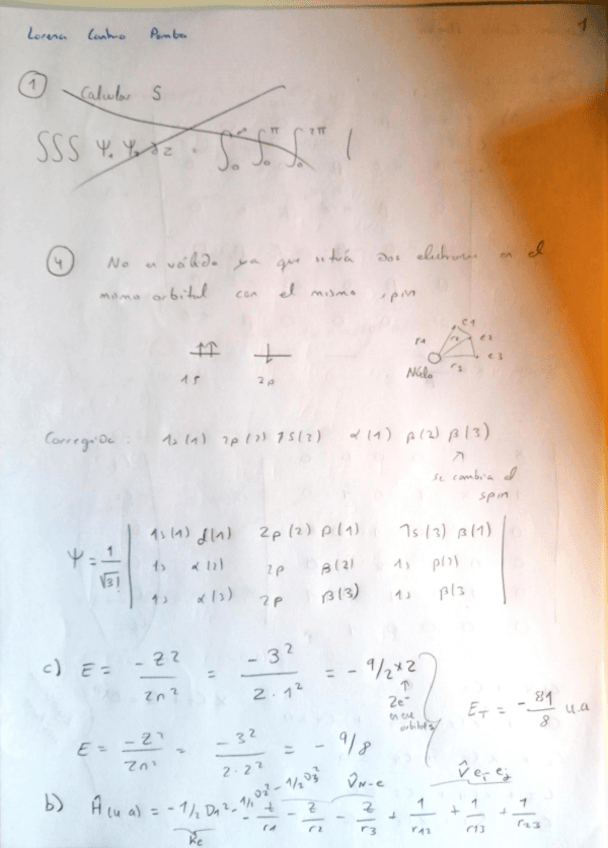 Lorena Castro Pombo
1
① Calcular S
∫∫∫ Ψ. Ψ. ∂z = ∫₀^∞ ∫₀^π ∫₀^2π
④ No es válido ya que sitúa dos electrones en el
mismo orbital con el mismo spin
1s 2p
r1 e1
r2 e2
r3 e3
Núcleo
Corregida: 1s(1) 2p(2) 1s(3) α(1) β(2) β(3)
↗
se cambia el
spin
Ψ = 1/√3! | 1s(1) α(1) 2p(2) β(1) 1s(3) β(1) |
| 1s α(2) 2p β(2) 1s β(2) |
| 1s α(3) 2p β(3) 1s β(3 |
c) E = -Z²/2n² = -3²/2·1² = -9/2 x2
↑
2e⁻
en ese
orbital
E_T = -81/8 u.a
E = -Z²/2n² = -3²/2·2² = -9/8
b) Ĥ(u a) = -1/2 ∇1² -1/2 ∇2² -1/2 ∇3² - Z/r1 - Z/r2 - Z/r3 + 1/r12 + 1/r13 + 1/r23
V̂N-e
V̂ ei ej